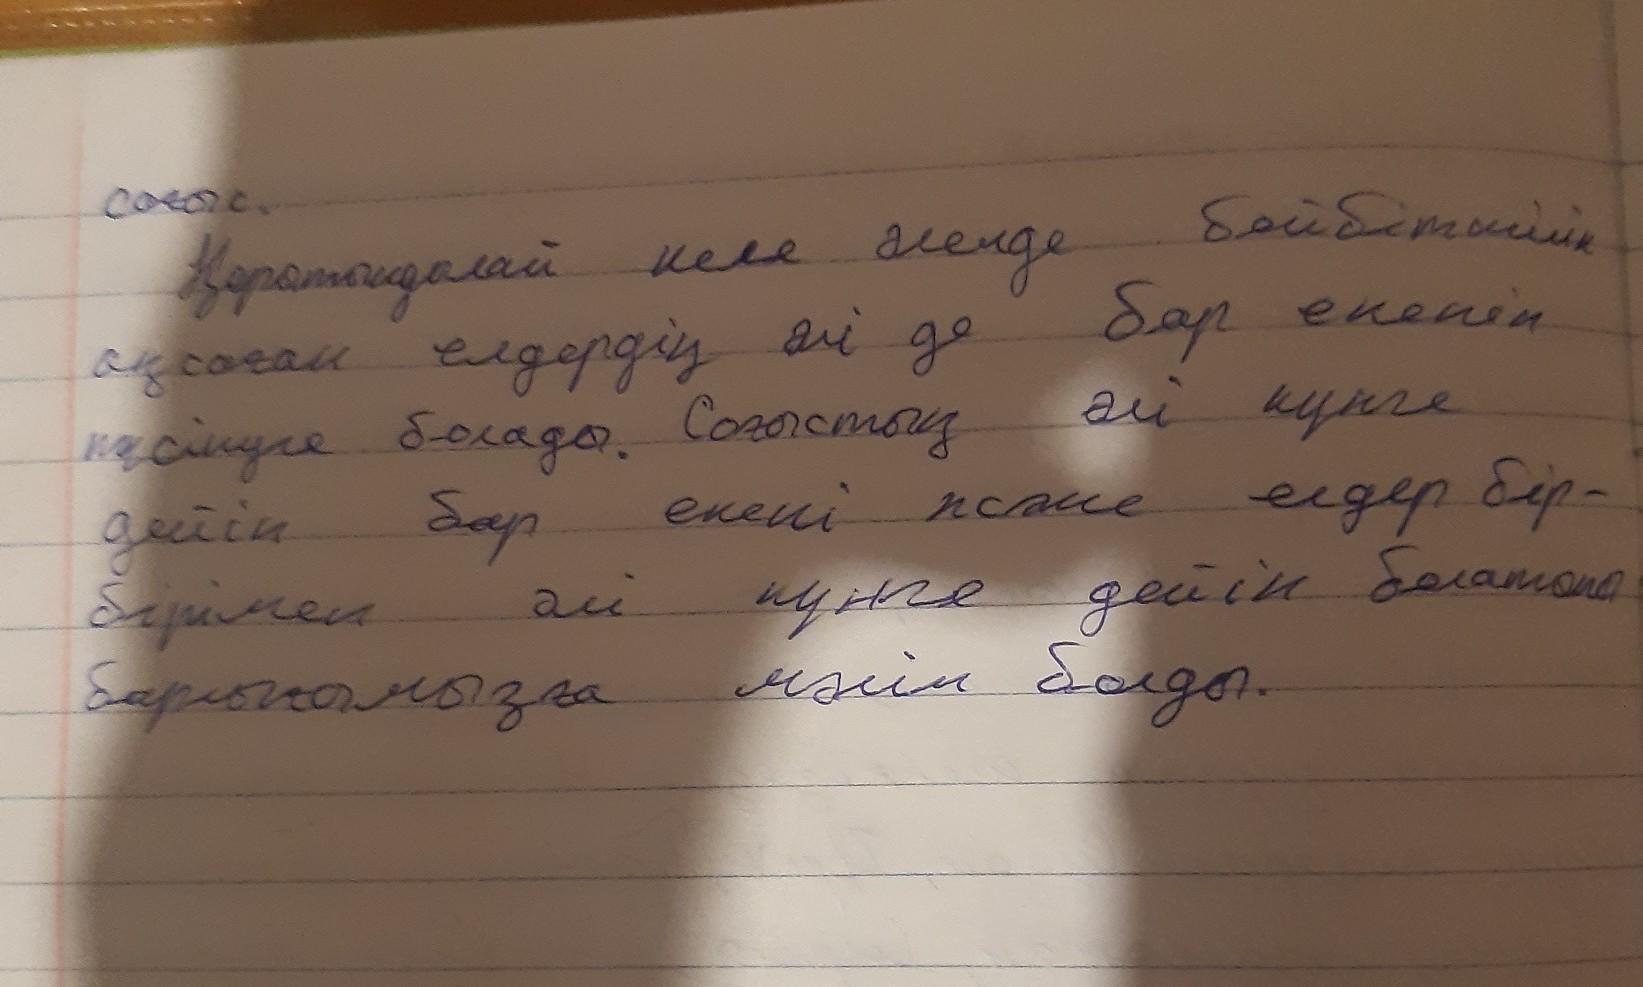 соғыс.
Қорытындылай келе әлемде бейбітшілік
аңсаған елдердің әлі де бар екенін
түсінуге болады. Соғыстың әлі күнге
дейін бар екені және елдер бір-
бірімен әлі күнге дейін болатыны
барлығымызға мәлім болды.